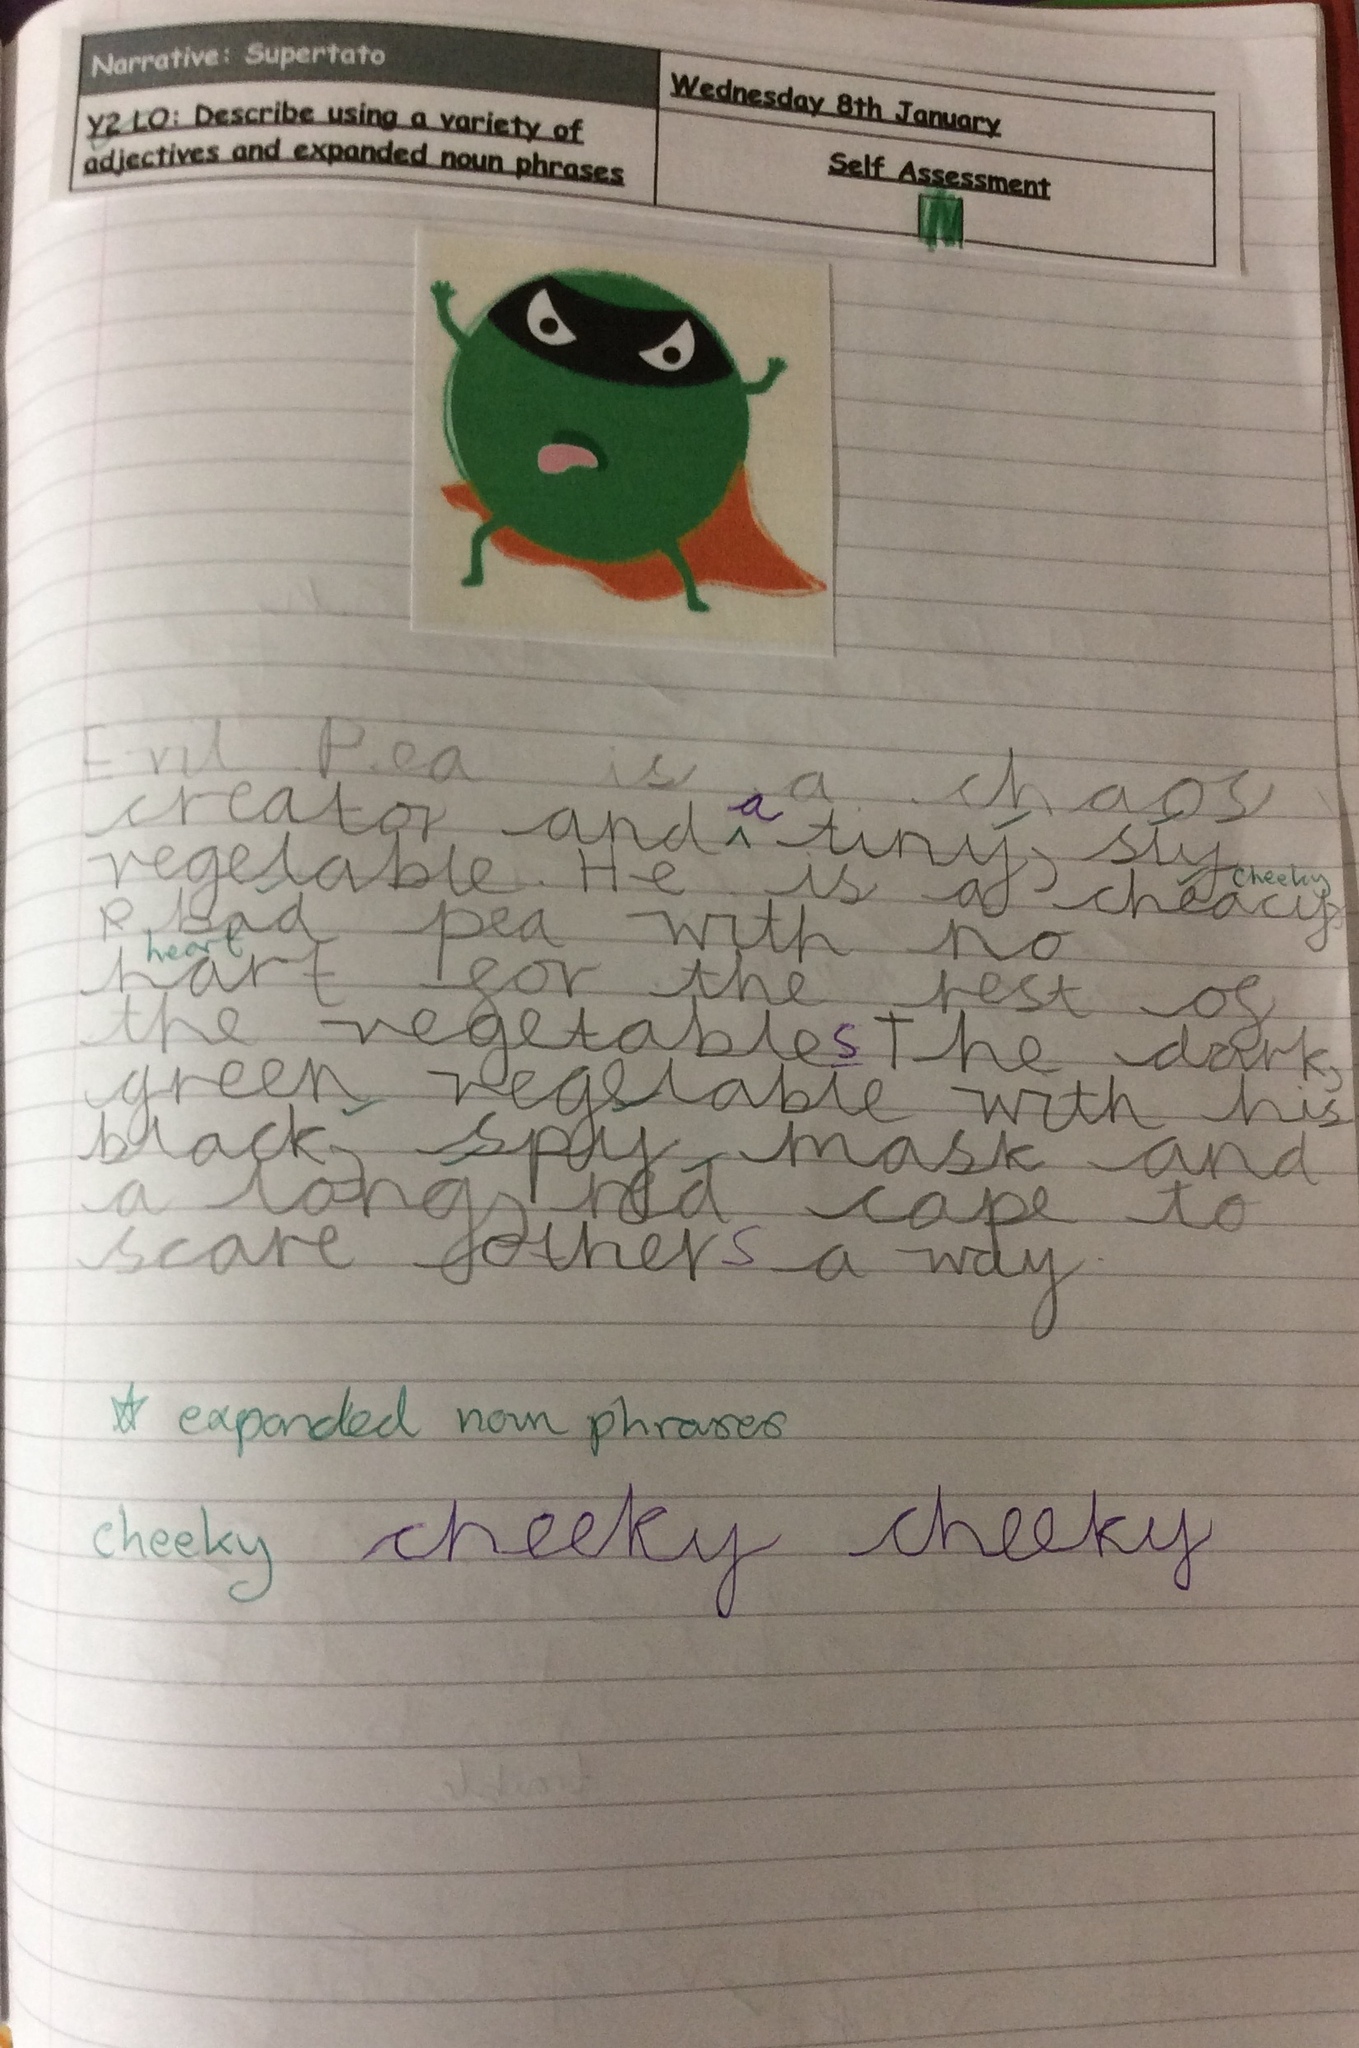 Narrative: Supertato
Y2 LO: Describe using a variety of
adjectives and expanded noun phrases
Wednesday 8th January
Self Assessment
Evil Pea is a chaos
creator and a tiny, sly
vegetable. He is a cheacy, cheeky
bad pea with no
heart
hart for the rest of
the vegetables The dark,
green vegetable with his
black, spy mask and
a long, red cape to
scare others a way.
☆ expanded noun phrases
cheeky cheeky cheeky